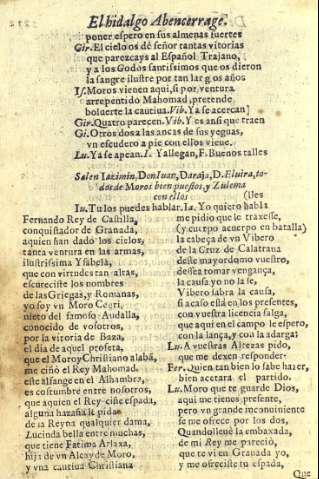 El hidalgo Abencerrage.
poner espero en sus almenas fuertes
Gir. El cielo os dè señor tantas vitorias
que parezcays al Español Trajano,
y a los Godos santissimos que os dieron
la sangre ilustre por tan largos años
Is. Moros vienen aqui, si por ventura
arrepentido Mahomad, pretende
boluerte la cautiua. Vib. Ya se acercan
Gir. Quatro parecen. Vib. Y es ansi que traen
Gi. Otros dos a las ancas de sus yeguas,
vn escudero a pie con ellos viene.
Lu. Ya se apean. I. Y allegan, F. Buenos talles
Salen Iazimin, Don Iuan, Daraja, D. Eluira, to-
dos de Moros bien puestos, y Zulema
con ellos
Iu. Tu los puedes hablar. Ia. Yo quiero habla
Fernando Rey de Castilla,
conquistador de Granada,
a quien han dado los cielos,
tanta ventura en las armas,
ilustrissima Ysabela,
que con virtudes tan altas,
escureciste los nombres
de las Griegas, y Romanas,
yo soy vn Moro Cegri,
nieto del famoso Audalla,
conocido de vosotros,
por la vitoria de Baza,
el dia de aquel profeta,
que el Moro y Christiano alaba,
me ciñò el Rey Mahomad
este alfange en el Alhambra,
es costumbre entre nosotros,
que a quien el Rey ciñe espada,
alguna hazaña le pida
de la Reyna qualquier dama,
Lucinda bella entre muchas,
que tiene Fatima Arlaxa,
hija de vn Alcayde Moro,
y vna cautiua Christiana
(lles
me pidio que le traxesse,
(y cuerpo a cuerpo en batalla)
la cabeça de vn Vibero
de la Cruz de Calatraua
deste mayordomo vuestro,
dessea tomar vengança,
la causa yo no la se,
Vibero sabra la causa,
si acaso està en los presentes,
con vuestra licencia salga,
que aqui en el campo le espero,
con la lança, y con la adarga:
Lu. A vuestras Altezas pido,
que me dexen responder.
Fer. Quien tan bien lo sabe hazer,
bien acetara el partido.
Lu. Moro que te guarde Dios,
aqui me tienes presente,
pero vn grande inconuiniente
se me ofrece por los dos,
Quando lleuè la embaxada,
de mi Rey me pareciò,
que te vi en Granada yo,
y me ofreciste tu espada,
Que